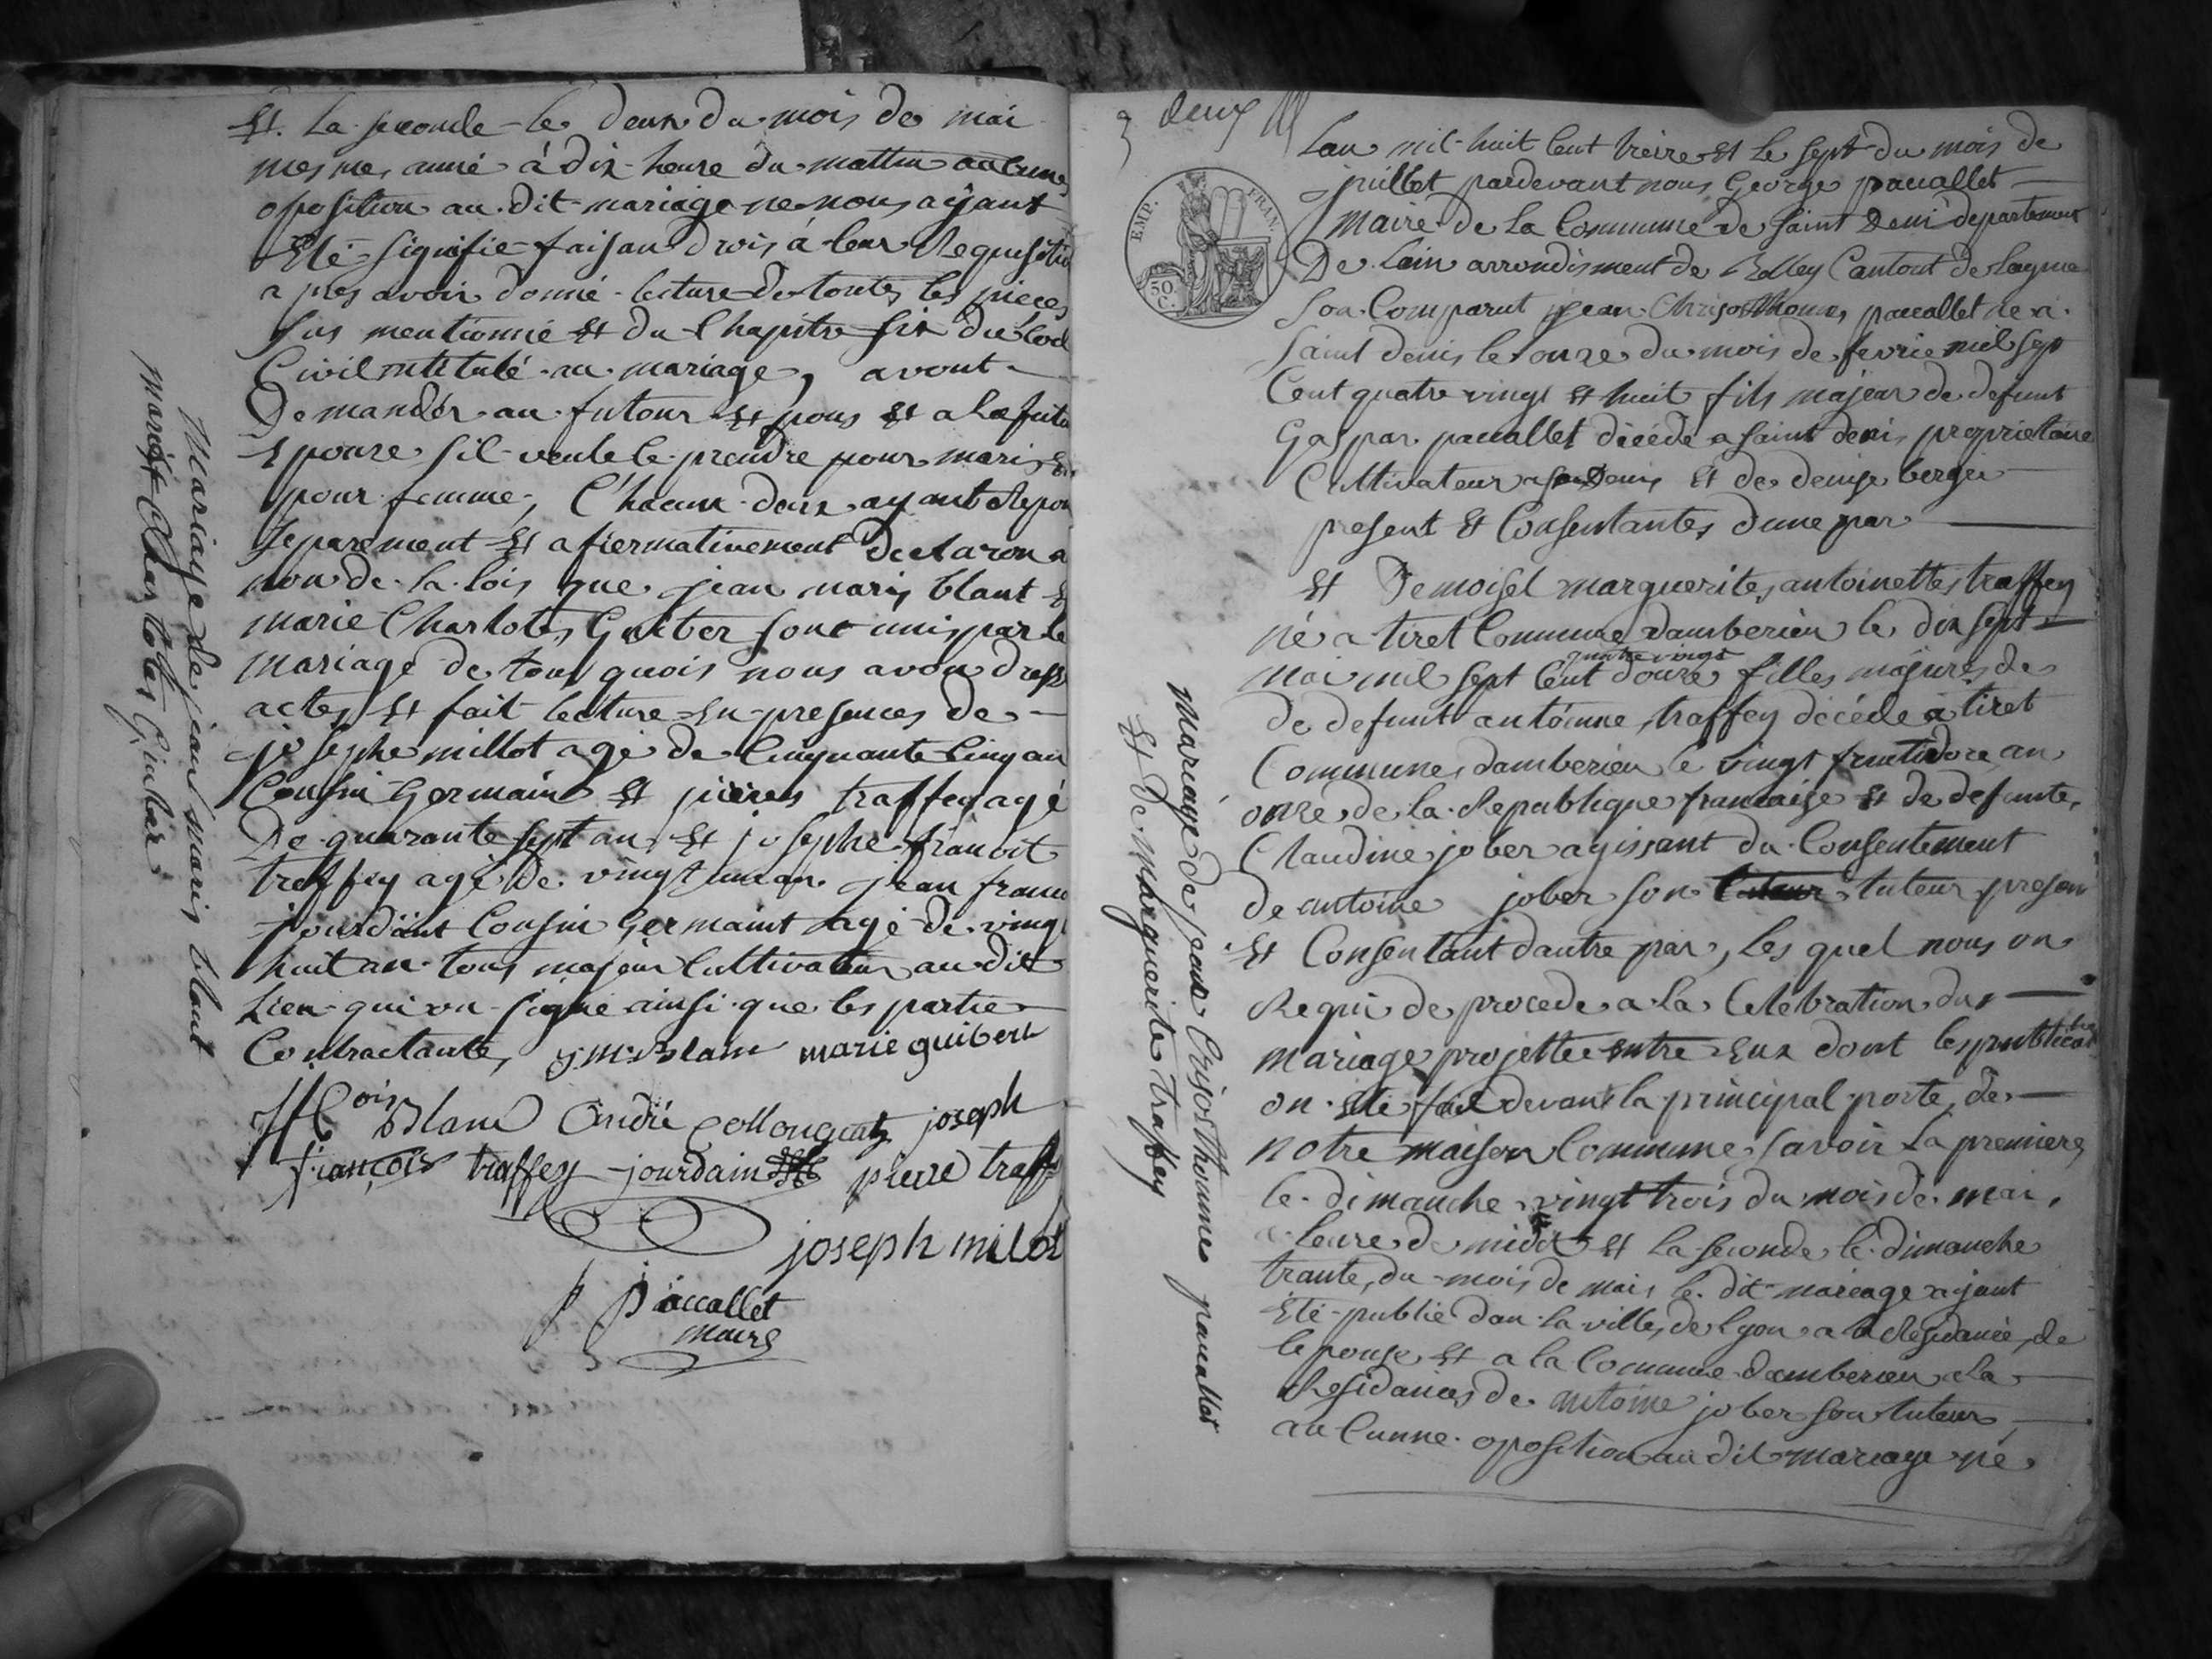 Et. La seconde le deux du mois de mai
mesme annié à dix heure du mattin aucune
oposition au dit mariage ne nous ayant
Eté signifie faisan drois à leur Requisitio
a pres avoir donné lecture de toute les pièces
sus mentionné Et du Chapitre six du Cod
Civil intitulé au mariage, avont
Demander au futour Et pous Et a la futu
Epouze sil veule le prendre pour maris Et
pour femme, Chacun deux ayant Repon
separement Et afiermativement declaron a
non de la lois que jean maris blant Et
marie Charlotes Guiber sont unis par le
mariage de tous quois nous avon dresse
actes Et fait lecture En presences de
josephe millot agé de Cinquante Cinq an
Cousin Germain Et pieres traffey agé
De quarante sept an Et josephe franoit
traffey agé de vingt un an jean franc
jourdant Cousin Germaint agé de vingt
huit an tous majeur Cultivateur au dit
Lieu qui on signe ainsi que les partie
Contractante, j m Blanc marie guibert
fcois Blanc André Collonge joseph
françois traffey jourdain pierre traff
joseph milot
P Paccallet
maire
Mariage de jean maris blant
Marie Charlotes Guiber
deux
EMP. FRAN.
50 C.
Lan mil huit Cent treize Et le sept du mois de
juillet pardevant nous George paccallet
Maire de la Commune de saint Deni departement
De Lain arrondisment de Belley Canton de Lagnie
son Comparut jean Chrisosthomes paccallet né à
saint denis le onze du mois de fevrie mil sept
Cent quatre vingt Et huit fils majeur de defunt
Gaspar paccallet décédé a saint denis proprietaire
Cultivateur a st Denis Et de denise berger
present Et Consentantes dune par
Et Demoisel marguerites antoinettes traffey
né a tiret Commune damberieu le dix sept
quatre vingt
mai mil sept Cent douze filles majures de
de defunt antoinne traffey décéde à tiret
Communes damberieu le vingt frutidore an
onze de la Republique francaise Et de defunte
Claudine jober agissant du Consentement
de antoine jober son tuteur presen
Et Consentant dautre par, Les quel nous on
Requi de procede a la Celebration du
mariage projettee entre Eux dont les publication
on Eté fait devant la principal porte de
notre maison Commune savoir La premiere
le dimanche vingt trois du mois de mai
a leure de midit Et la seconde le dimanche
trante du mois de mais le dit mariage ayant
Eté publié dan la ville de Lyon a la Residance de
lepouse Et a la Commune damberieu a la
Residances de antoine jober son tuteur
au Cunne oposition au dit mariage ne
Mariage de jean Crisosthomme paccallet
Et de marguerite traffey